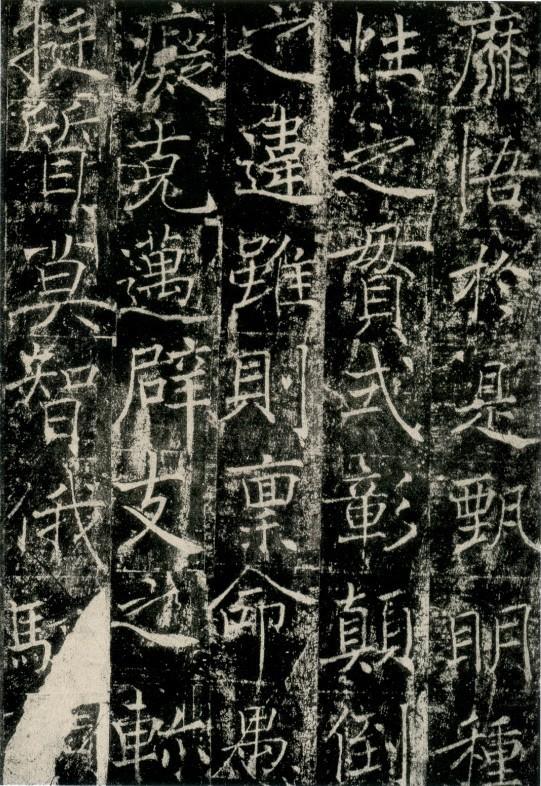 靡悟於是甄明種
性之貫式彰顛倒
之違雖則稟命愚
癡克邁辟支之轍
挺質莫智俄